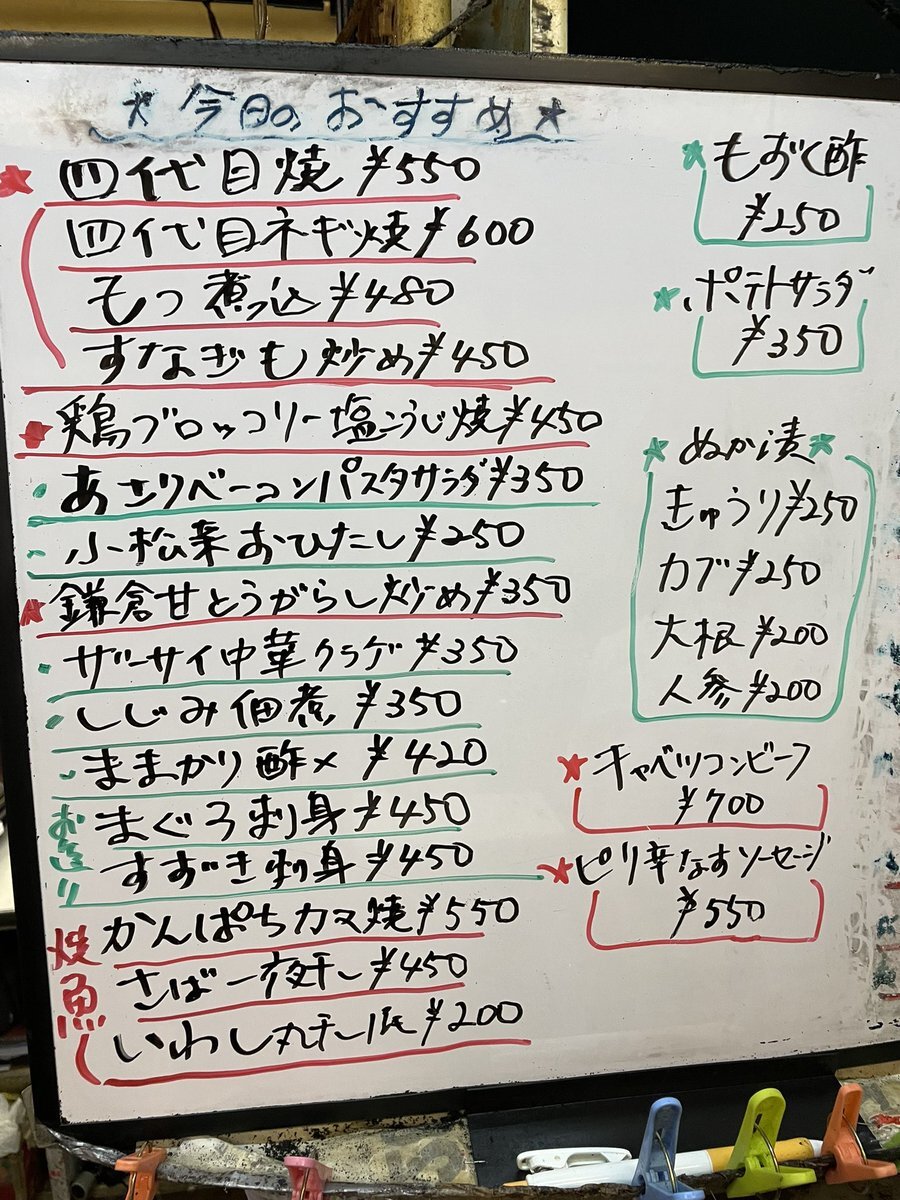 ★今日のおすすめ★
★四代目焼 ¥550
四代目ネギ焼 ¥600
もつ煮込 ¥480
すなぎも炒め ¥450
★鶏ブロッコリー塩こうじ焼 ¥450
・あさりベーコンパスタサラダ ¥350
・小松菜おひたし ¥250
★鎌倉甘とうがらし炒め ¥350
・ザーサイ中華クラゲ ¥350
・しじみ佃煮 ¥350
・ままかり酢〆 ¥420
お造り
まぐろ刺身 ¥450
すずき刺身 ¥450
焼魚
かんぱちカマ焼 ¥550
さば一夜干し ¥450
いわし丸干し1匹 ¥200
★もずく酢
¥250
★ポテトサラダ
¥350
★ぬか漬★
きゅうり ¥250
カブ ¥250
大根 ¥200
人参 ¥200
★キャベツコンビーフ
¥700
★ピリ辛なすソーセージ
¥550